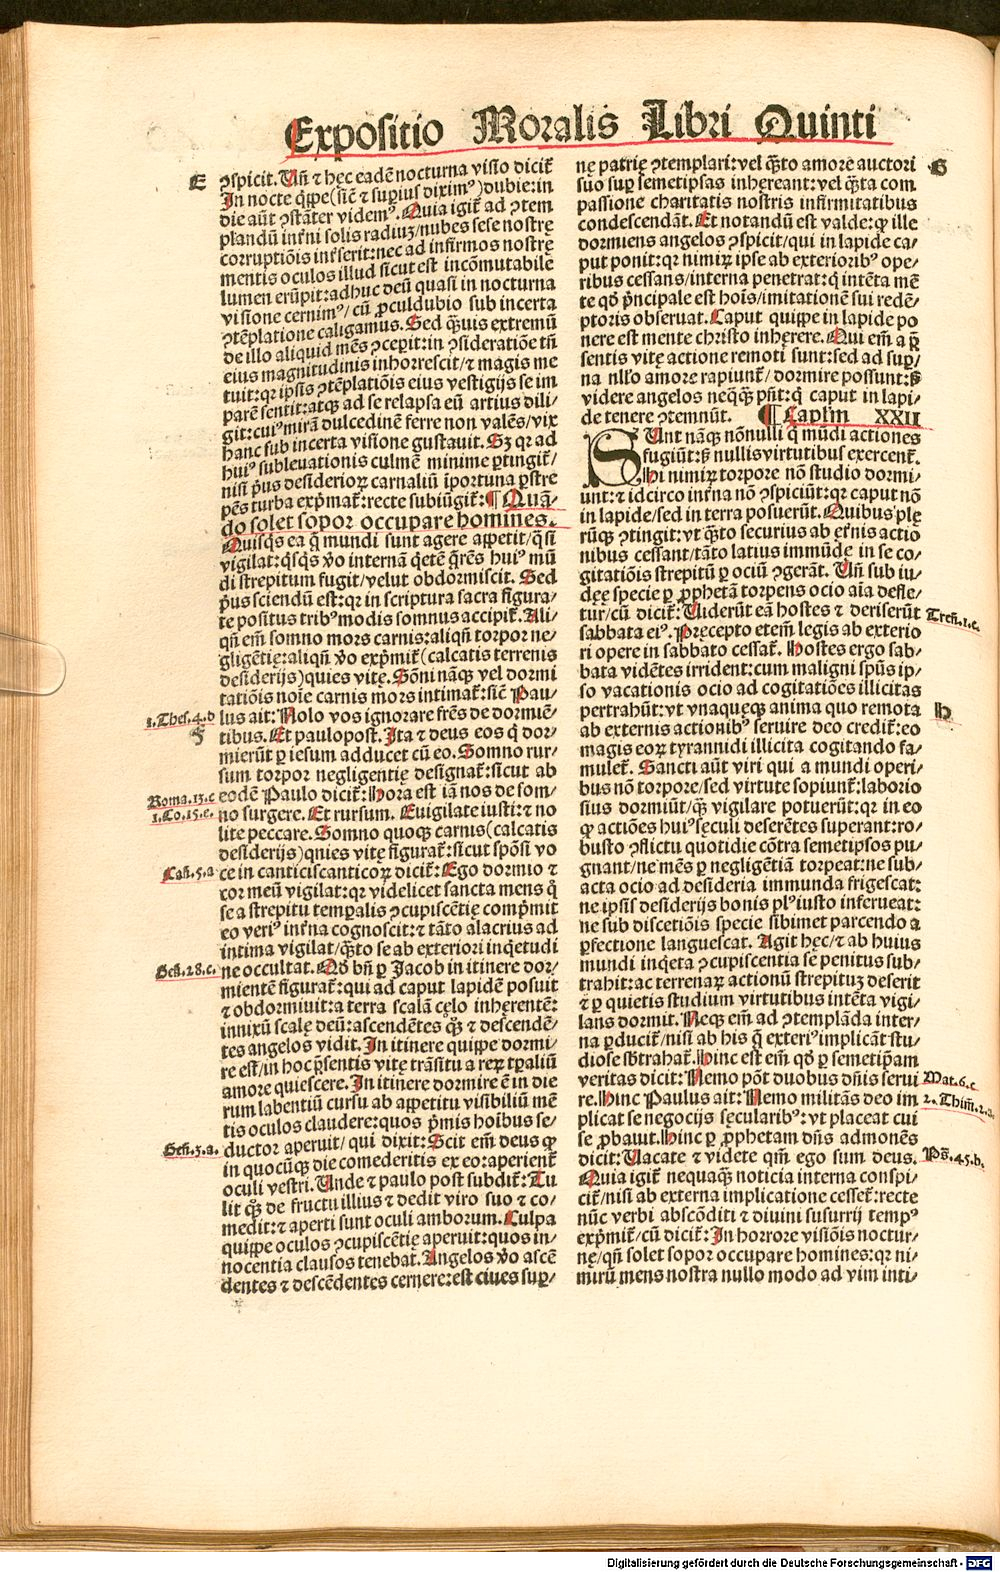 Expositio Moralis Libri Quinti
E
ꝯspicit. Uñ ⁊ hęc eadē nocturna visio dicit̃
In nocte q̃ppe (sic̃ ⁊ supius diximꝰ) dubie: in
die aũt ꝯstãter videmꝰ. Quia igit̃ ad ꝯtem
plandũ int̃ni solis radiuꝫ/ nubes sese nostrę
corruptiõis inserit: nec ad infirmos nostrę
mentis oculos illud sicut est incõmutabile
lumen erũpit: adhuc deũ quasi in nocturna
visione cernimꝰ/ cũ ꝓculdubio sub incerta
ꝯtẽplatione caligamus. Sed q̃uis extremũ
de illo aliquid mẽs ꝯcepit: in ꝯsideratiõe tñ
eius magnitudinis inhorrescit/ ⁊ magis me
tuit: qꝛ ipsis ꝯtẽplatiõis eius vestigijs se im
parẽ sentit: atqꝫ ad se relapsa eũ artius dili/
git: cuiꝰ mirã dulcedinẽ ferre non valẽs/ vix
hanc sub incerta visione gustauit. Sꝫ qꝛ ad
huiꝰ subleuationis culmẽ minime ꝑtingit̃/
nisi p̃us desideriorꝝ carnaliũ ĩportuna ꝑstre
pẽs turba exp̃mat̃: recte subiũgit̃: ¶ Quã/
do solet sopor occupare homines.
Quisqs ea q̃ mundi sunt agere appetit/ q̃si
vigilat: q̃sqs ꝟo internã q̃etẽ q̃rẽs huiꝰ mũ
di strepitum fugit/ velut obdormiscit. Sed
p̃us sciendũ est: qꝛ in scriptura sacra figura/
te positus tribꝰ modis somnus accipit̃. Ali/
qñ em̃ somno mors carnis: aliqñ torpor ne/
gligẽtię: aliqñ ꝟo exp̃mit̃ (calcatis terrenis
desiderijs) quies vitę. Sõni nãqꝫ vel dormi
tatiõis noĩe carnis mors intimat̃: sic̃ Pau/
1. Thes. 4. d
lus ait: Nolo vos ignorare fr̃es de dormiẽ/
F
tibus. Et paulopost. Ita ⁊ deus eos q̃ dor/
mierũt p iesum adducet cũ eo. Somno rur/
sum torpor negligentię designat̃: sicut ab
Roma. 13. c
eodẽ Paulo dicit̃: Hora est iã nos de som/
1. Co. 15. e.
no surgere. Et rursum. Euigilate iusti: ⁊ no
lite peccare. Somno quoqꝫ carnis (calcatis
desiderijs) qnies vitę figurat̃: sicut spõsi vo
Cañ. 5. a
ce in canticis canticorꝝ dicit̃: Ego dormio ⁊
cor meũ vigilat: qꝛ videlicet sancta mens q̃
se a strepitu tempalis ꝯcupiscẽtię comp̃mit
eo veriꝰ int̃na cognoscit: ⁊ tãto alacrius ad
intima vigilat/ q̃sto se ab exteriori inq̃etudi
Geñ. 28. c.
ne occultat. Qd̃ bñ ꝑ Jacob in itinere dor/
mientẽ figurat̃: qui ad caput lapidẽ posuit
⁊ obdormiuit: a terra scalã cęlo inhęrentẽ:
innixũ scalę deũ: ascendẽtes qꝫ ⁊ descendẽ/
tes angelos vidit. In itinere quippe dormi/
re est/ in hoc p̃sentis vitę trãsitu a reꝝ tꝑaliũ
amore quiescere. In itinere dormire ẽ in die
rum labentiũ cursu ab appetitu visibiliũ mẽ
tis oculos claudere: quos p̃mis hoĩbus se/
Geñ. 3. a.
ductor aperuit/ qui dixit: Scit em̃ deus ꝙ
in quocũqꝫ die comederitis ex eo: aperient̃
oculi vestri. Unde ⁊ paulo post subdit̃: Tu
lit qꝫ de fructu illius ⁊ dedit viro suo ⁊ co/
medit: ⁊ aperti sunt oculi amborum. Culpa
quippe oculos ꝯcupiscẽtię aperuit: quos in/
nocentia clausos tenebat. Angelos ꝟo ascẽ
dentes ⁊ descẽdentes cernere: est ciues sup/
G
nę patrię ꝯtemplari: vel q̃to amore auctori
suo sup semetipsas inhereant: vel q̃ta com
passione charitatis nostris infirmitatibus
condescendãt. Et notandũ est valde: ꝙ ille
dormiens angelos ꝯspicit/ qui in lapide ca/
put ponit: qꝛ nimirꝝ ipse ab exteriorib' ope/
ribus cessans/ interna penetrat: q̃ intẽta mẽ
te qd̃ p̃ncipale est hoĩs/ imitationẽ sui redẽ/
ptoris obseruat. Caput quippe in lapide po
nere est mente christo inhęrere. Qui em̃ a p̃
sentis vitę actione remoti sunt: sed ad sup/
na nll̃o amore rapiunt̃/ dormire possunt: s̃
videre angelos neq̃q̃ pñt: q̃ caput in lapi/
de tenere ꝯtemnũt. ¶ Caplm̃ XXII
SUnt nãqꝫ nõnulli q̃ mũdi actiones
fugiũt: s̃ nullis virtutibus exercent̃.
Hi nimirꝝ torpore nõ studio dormi/
unt: ⁊ idcirco int̃na nõ ꝯspiciũt: qꝛ caput nõ
in lapide/ sed in terra posuerũt. Quibus plę
rũqꝫ ꝯtingit: vt q̃to securius ab ext̃nis actio
nibus cessant/ tãto latius immũdę in se co/
gitatiõis strepitũ ꝑ ociũ ꝯgerãt. Uñ sub iu/
dęę specie ꝑ ꝓphetã torpens ocio aĩa defle/
Treñ. 1. c.
tur/ cũ dicit̃: Uiderũt eã hostes ⁊ deriserũt
sabbata eiꝰ. Pręcepto etem̃ legis ab exterio
ri opere in sabbato cessat̃. Hostes ergo sab/
bata vidẽtes irrident: cum maligni spũs ip/
so vacationis ocio ad cogitatiões illicitas
H
pertrahũt: vt vnaquęqꝫ anima quo remota
ab externis actionibꝰ seruire deo credit̃: eo
magis eorꝝ tyrannidi illicita cogitando fa/
mulet̃. Sancti aũt viri qui a mundi operi/
bus nõ torpore/ sed virtute sopiunt̃: laborio
sius dormiũt/ q̃ vigilare potuerũt: qꝛ in eo
ꝙ actiões huiꝰ sęculi deserẽtes superant: ro/
busto ꝯflictu quotidie cõtra semetipsos pu/
gnant/ ne mẽs ꝑ negligẽtiã torpeat: ne sub/
acta ocio ad desideria immunda frigescat:
ne ipsis desiderijs bonis plꝰ iusto inferueat:
ne sub discetiõis specie sibimet parcendo a
ꝑfectione languescat. Agit hęc/ ⁊ ab huius
mundi inq̃eta ꝯcupiscentia se penitus sub/
trahit: ac terrenaꝝ actionũ strepituꝫ deserit
⁊ ꝑ quietis studium virtutibus intẽta vigi/
lans dormit. Neqꝫ em̃ ad ꝯtemplãda inter/
na ꝑducit̃/ nisi ab his q̃ exteriꝰ implicãt stu/
diose sb̃trahat̃. Hinc est em̃ qd̃ ꝑ semetip̃am
Mat. 6. c
veritas dicit: Nemo põt duobus dñis serui
2. Thim̃. 2. a.
re. Hinc Paulus ait: Nemo militãs deo im
plicat se negocijs sęcularibꝰ: vt placeat cui
se ꝓbauit. Hinc ꝑ ꝓphetam dñs admonẽs
Ps̃. 45. b.
dicit: Uacate ⁊ videte qm̃ ego sum deus.
Quia igit̃ nequaqꝫ noticia interna conspi/
cit̃/ nisi ab externa implicatione cesset̃: recte
nũc verbi abscõditi ⁊ diuini susurrij tempꝰ
exp̃mit̃/ cũ dicit̃: In horrore visiõis noctur/
nę/ qñ solet sopor occupare homines: qꝛ ni/
mirũ mens nostra nullo modo ad vim inti/
Digitalisierung gefördert durch die Deutsche Forschungsgemeinschaft - DFG